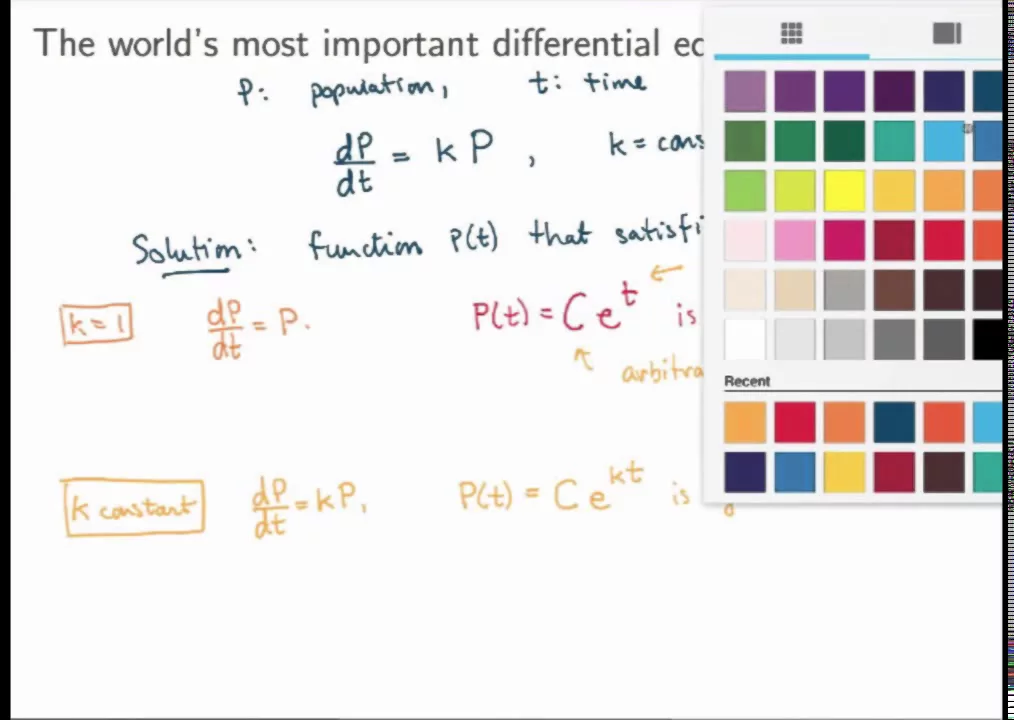 The world's most important differential
P: population, t: time
dP/dt = k P, k = cons
Solution: function P(t) that satisfi
k = 1 dP/dt = P. P(t) = C e^t is
arbitra
Recent
k constant dP/dt = kP, P(t) = C e^kt is